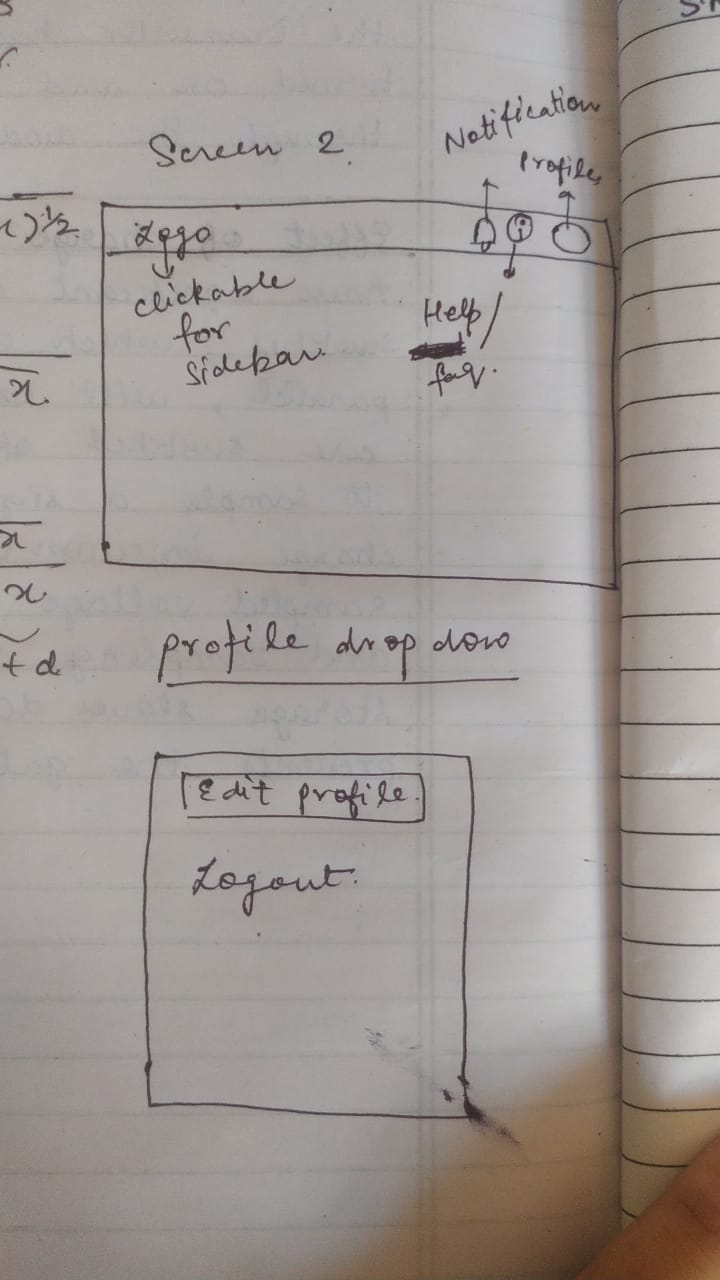 Screen 2.
Notification
Profile
x)^1/2
Logo
i
clickable
for
sidebar.
Help/
faq.
x
x
x
+ d
profile drop down
Edit profile.
Logout.